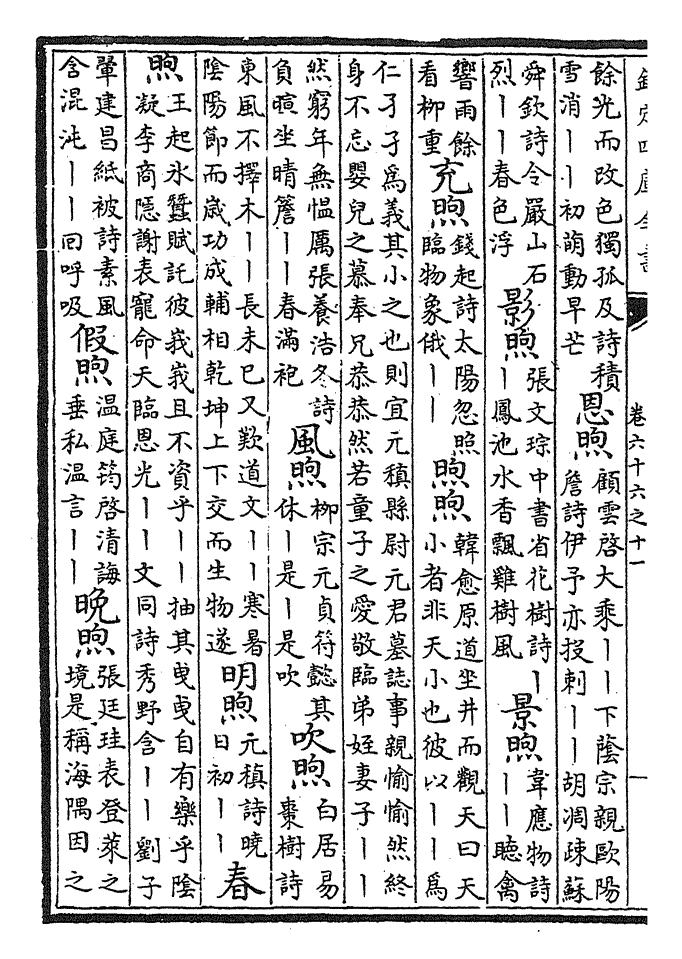 欽定四庫全書
卷六十六之十一
餘光而改色獨孤及詩積
雪消丨丨初萌動早芒
恩煦
顧雲啓大乘丨丨下蔭宗親歐陽
詹詩伊予亦投刺丨丨胡凋疎蘇
舜欽詩令嚴山石
烈丨丨春色浮
影煦
張文琮中書省花樹詩丨
丨鳳池水香飄雞樹風
景煦
韋應物詩
丨丨聽禽
響雨餘
看柳重
充煦
錢起詩太陽忽照
臨物象俄丨丨
煦煦
韓愈原道坐井而觀天曰天
小者非天小也彼以丨丨爲
仁孑孑爲義其小之也則宜元稹縣尉元君墓誌事親愉愉然終
身不忘嬰兒之慕奉兄恭恭然若童子之愛敬臨弟姪妻子丨丨
然窮年無慍厲張養浩冬詩
負暄坐晴簷丨丨春滿袍
風煦
柳宗元貞符懿其
休丨是丨是吹
吹煦
白居易
棗樹詩
東風不擇木丨丨長未已又歎道文丨丨寒暑
陰陽節而歲功成輔相乾坤上下交而生物遂
明煦
元稹詩曉
日初丨丨
春
煦
王起氷蠶賦託彼峩峩且不資乎丨丨抽其曳曳自有樂乎陰
凝李商隱謝表寵命天臨恩光丨丨文同詩秀野含丨丨劉子
翬建昌紙被詩素風
含混沌丨丨回呼吸
假煦
温庭筠啓清誨
垂私温言丨丨
晚煦
張廷珪表登萊之
境是稱海隅因之